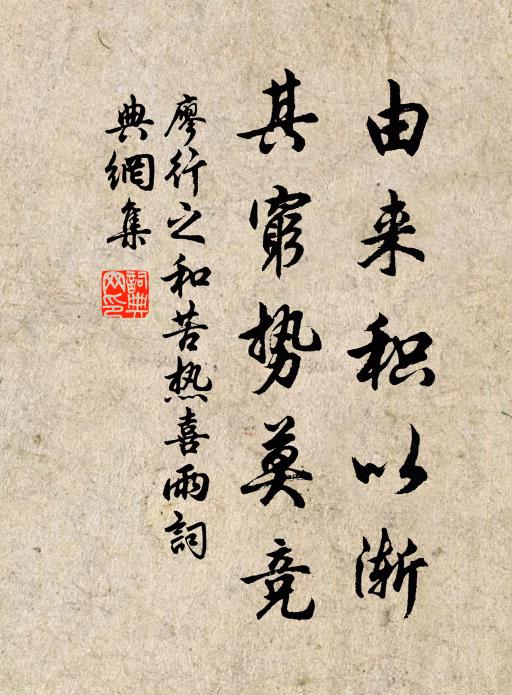 由来积以渐
其穷势莫竞
廖行之和苦热喜雨詞
典網集
詞典
网印